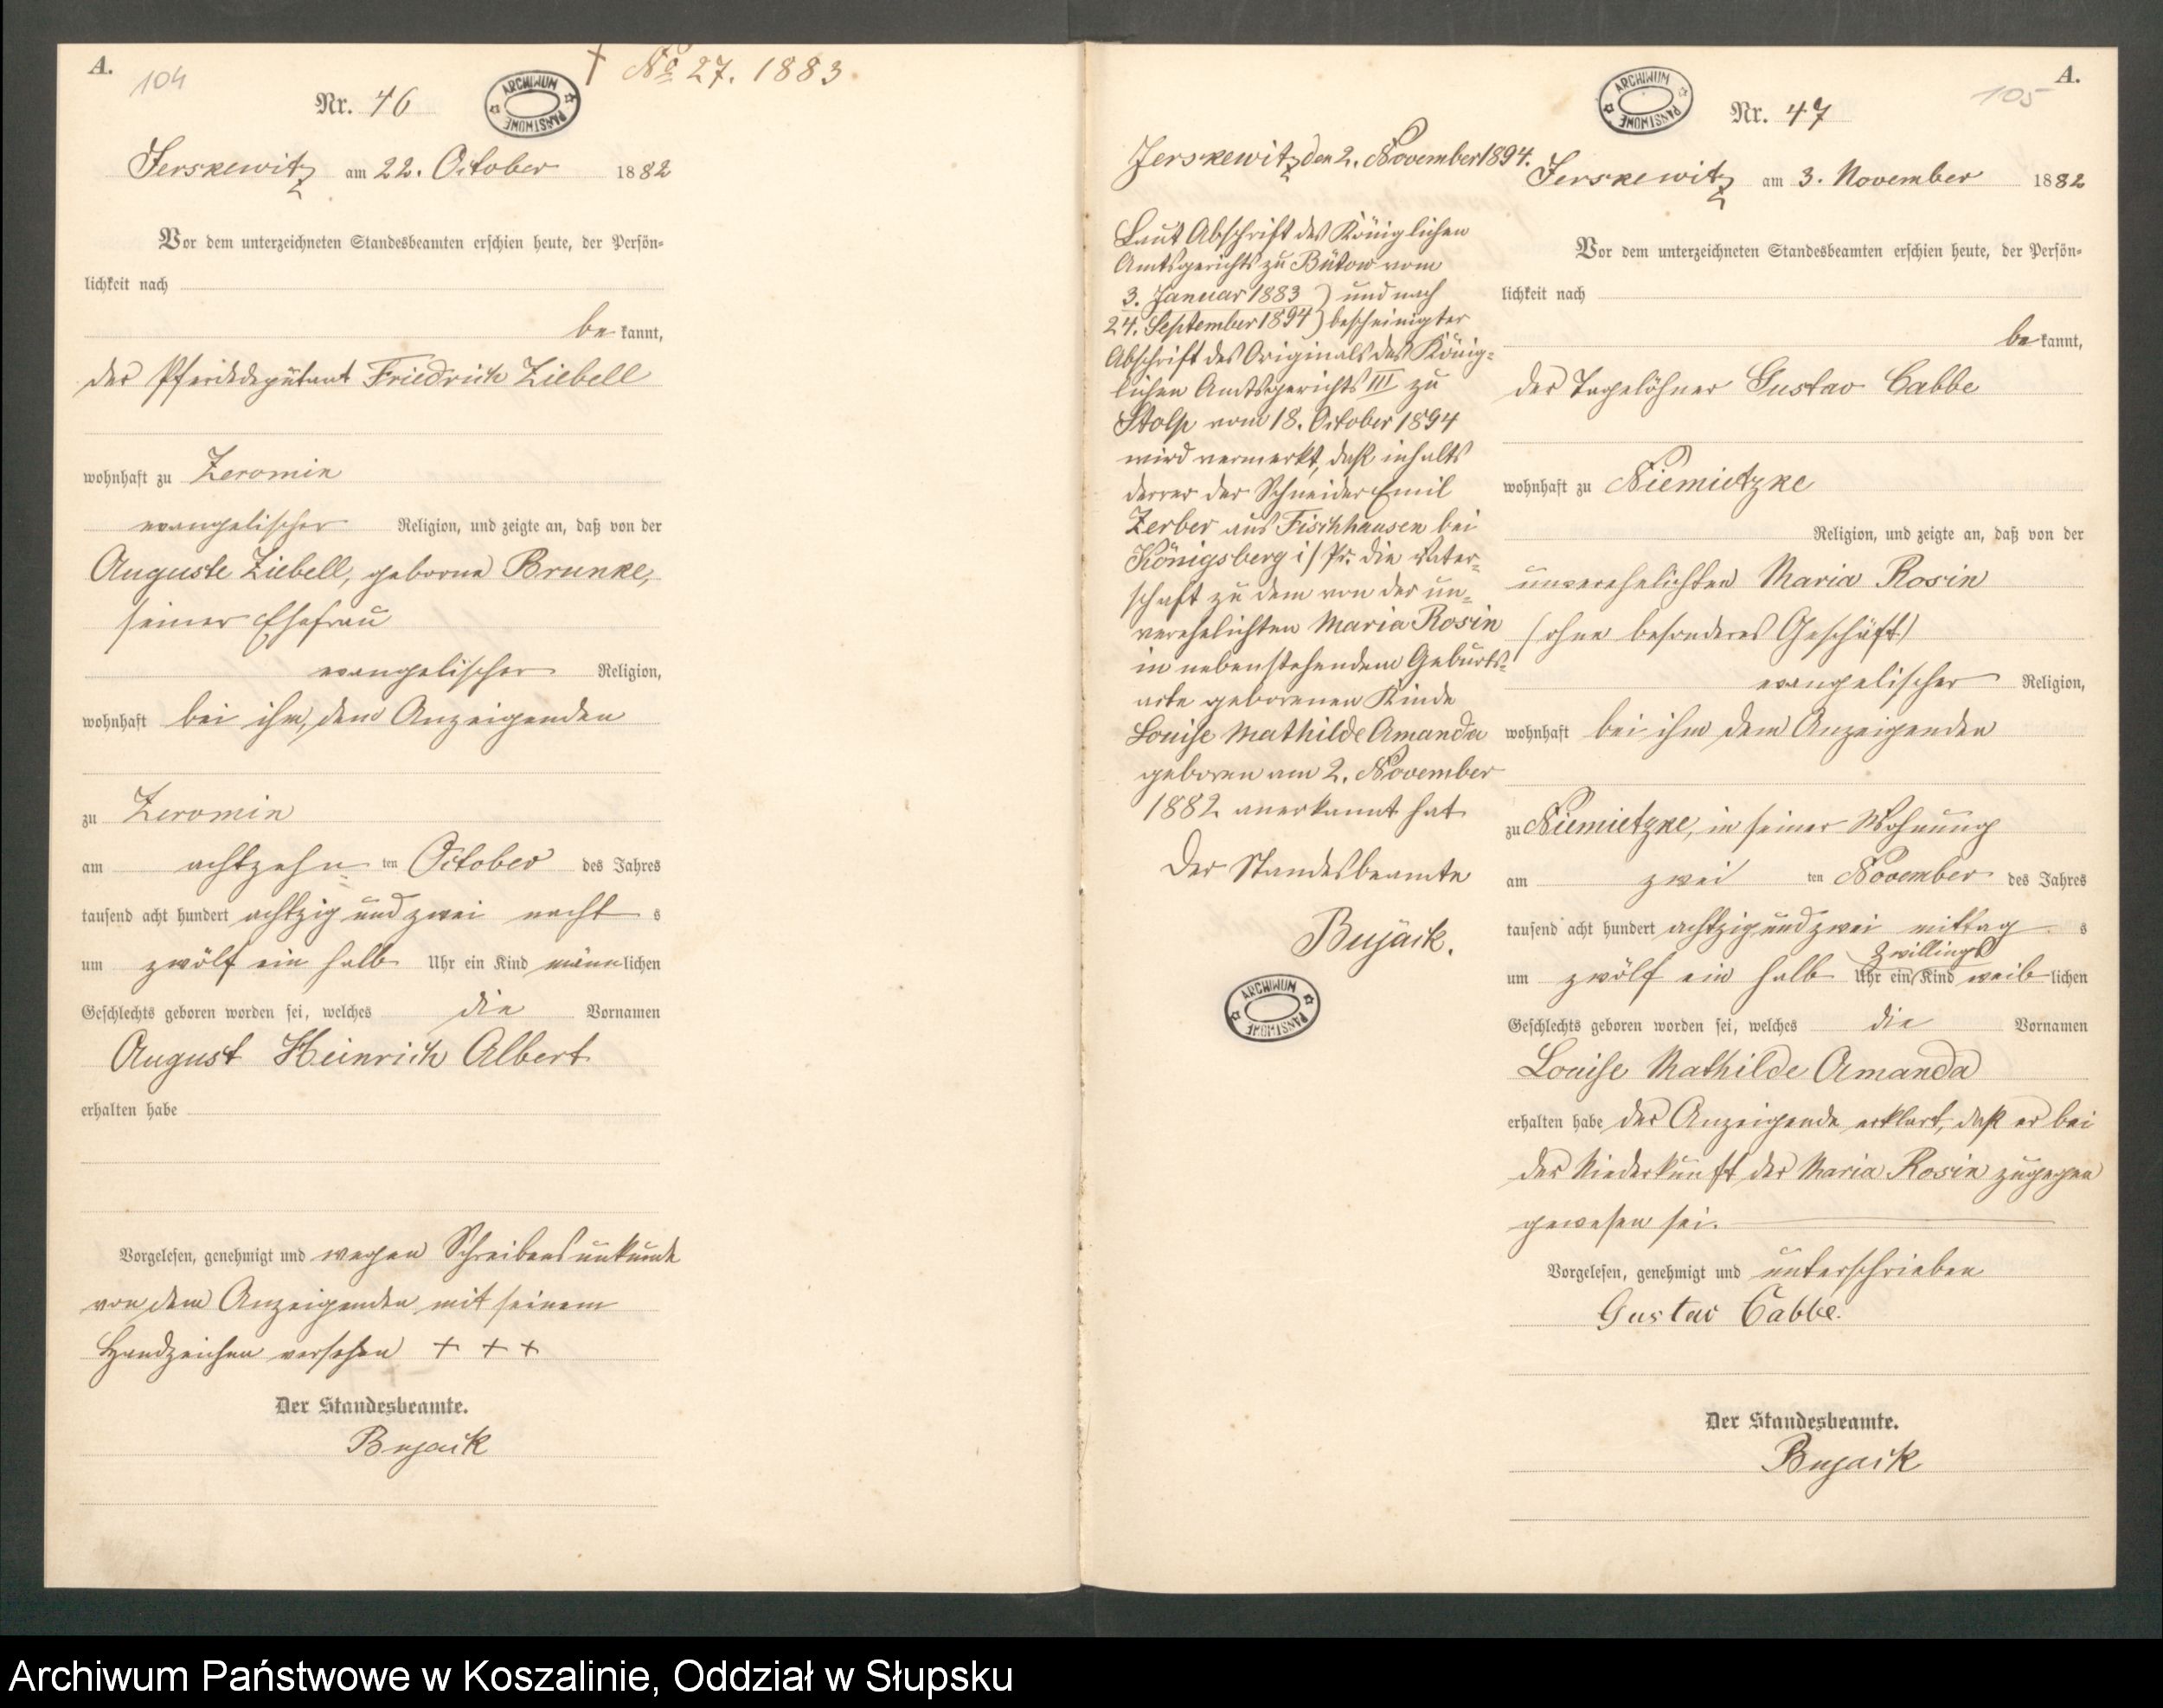 A.
104
† No 27. 1883.
ARCHIWUM PAŃSTWOWE
Nr. 46
Jerskewitz am 22. October 1882
Vor dem unterzeichneten Standesbeamten erschien heute, der Persön-
lichkeit nach
be kannt,
der Pferdedeputant Friedrich Ziebell
wohnhaft zu Zeromin
evangelischer Religion, und zeigte an, daß von der
Auguste Ziebell, geborne Brunke,
seiner Ehefrau
evangelischer Religion,
wohnhaft bei ihm, dem Anzeigenden
zu Zeromin
am achtzehn ten October des Jahres
tausend acht hundert achtzig und zwei nacht s
um zwölf ein halb Uhr ein Kind männlichen
Geschlechts geboren worden sei, welches die Vornamen
August Heinrich Albert
erhalten habe
Vorgelesen, genehmigt und wegen Schreibensunkunde
von dem Anzeigenden mit seinem
Handzeichen versehen + + +
Der Standesbeamte.
Bujack
Jerskewitz den 2. November 1894.
Laut Abschrift des Königlichen
Amtsgerichts zu Bütow vom
3. Januar 1883 ) und nach
24. September 1894 ) bescheinigter
Abschrift des Originals des König-
lichen Amtsgerichts III zu
Stolp vom 18. October 1894
wird vermerkt, daß inhalts
derer der Schneider Emil
Zerber aus Fischhausen bei
Königsberg i/Pr. die Vater-
schaft zu dem von der un-
verehelichten Maria Rosin
in nebenstehendem Geburts-
acte geborenen Kinde
Louise Mathilde Amanda
geboren am 2. November
1882 anerkannt hat
Der Standesbeamte
Bujack.
ARCHIWUM PAŃSTWOWE
A.
105
ARCHIWUM PAŃSTWOWE
Nr. 47
Jerskewitz am 3. November 1882
Vor dem unterzeichneten Standesbeamten erschien heute, der Persön-
lichkeit nach
be kannt,
der Tagelöhner Gustav Cabbe
wohnhaft zu Niemietzke
Religion, und zeigte an, daß von der
unverehelichten Maria Rosin
(ohne besonderes Geschäft)
evangelischer Religion,
wohnhaft bei ihm dem Anzeigenden
zu Niemietzke, in seiner Wohnung
am zwei ten November des Jahres
tausend acht hundert achtzig und zwei mittag s
um zwölf ein halb Uhr ein Zwillings Kind weiblichen
Geschlechts geboren worden sei, welches die Vornamen
Louise Mathilde Amanda
erhalten habe der Anzeigende erklärt, daß er bei
der Niederkunft der Maria Rosin zugegen
gewesen sei.
Vorgelesen, genehmigt und unterschrieben
Gustav Cabbe.
Der Standesbeamte.
Bujack
Archiwum Państwowe w Koszalinie, Oddział w Słupsku